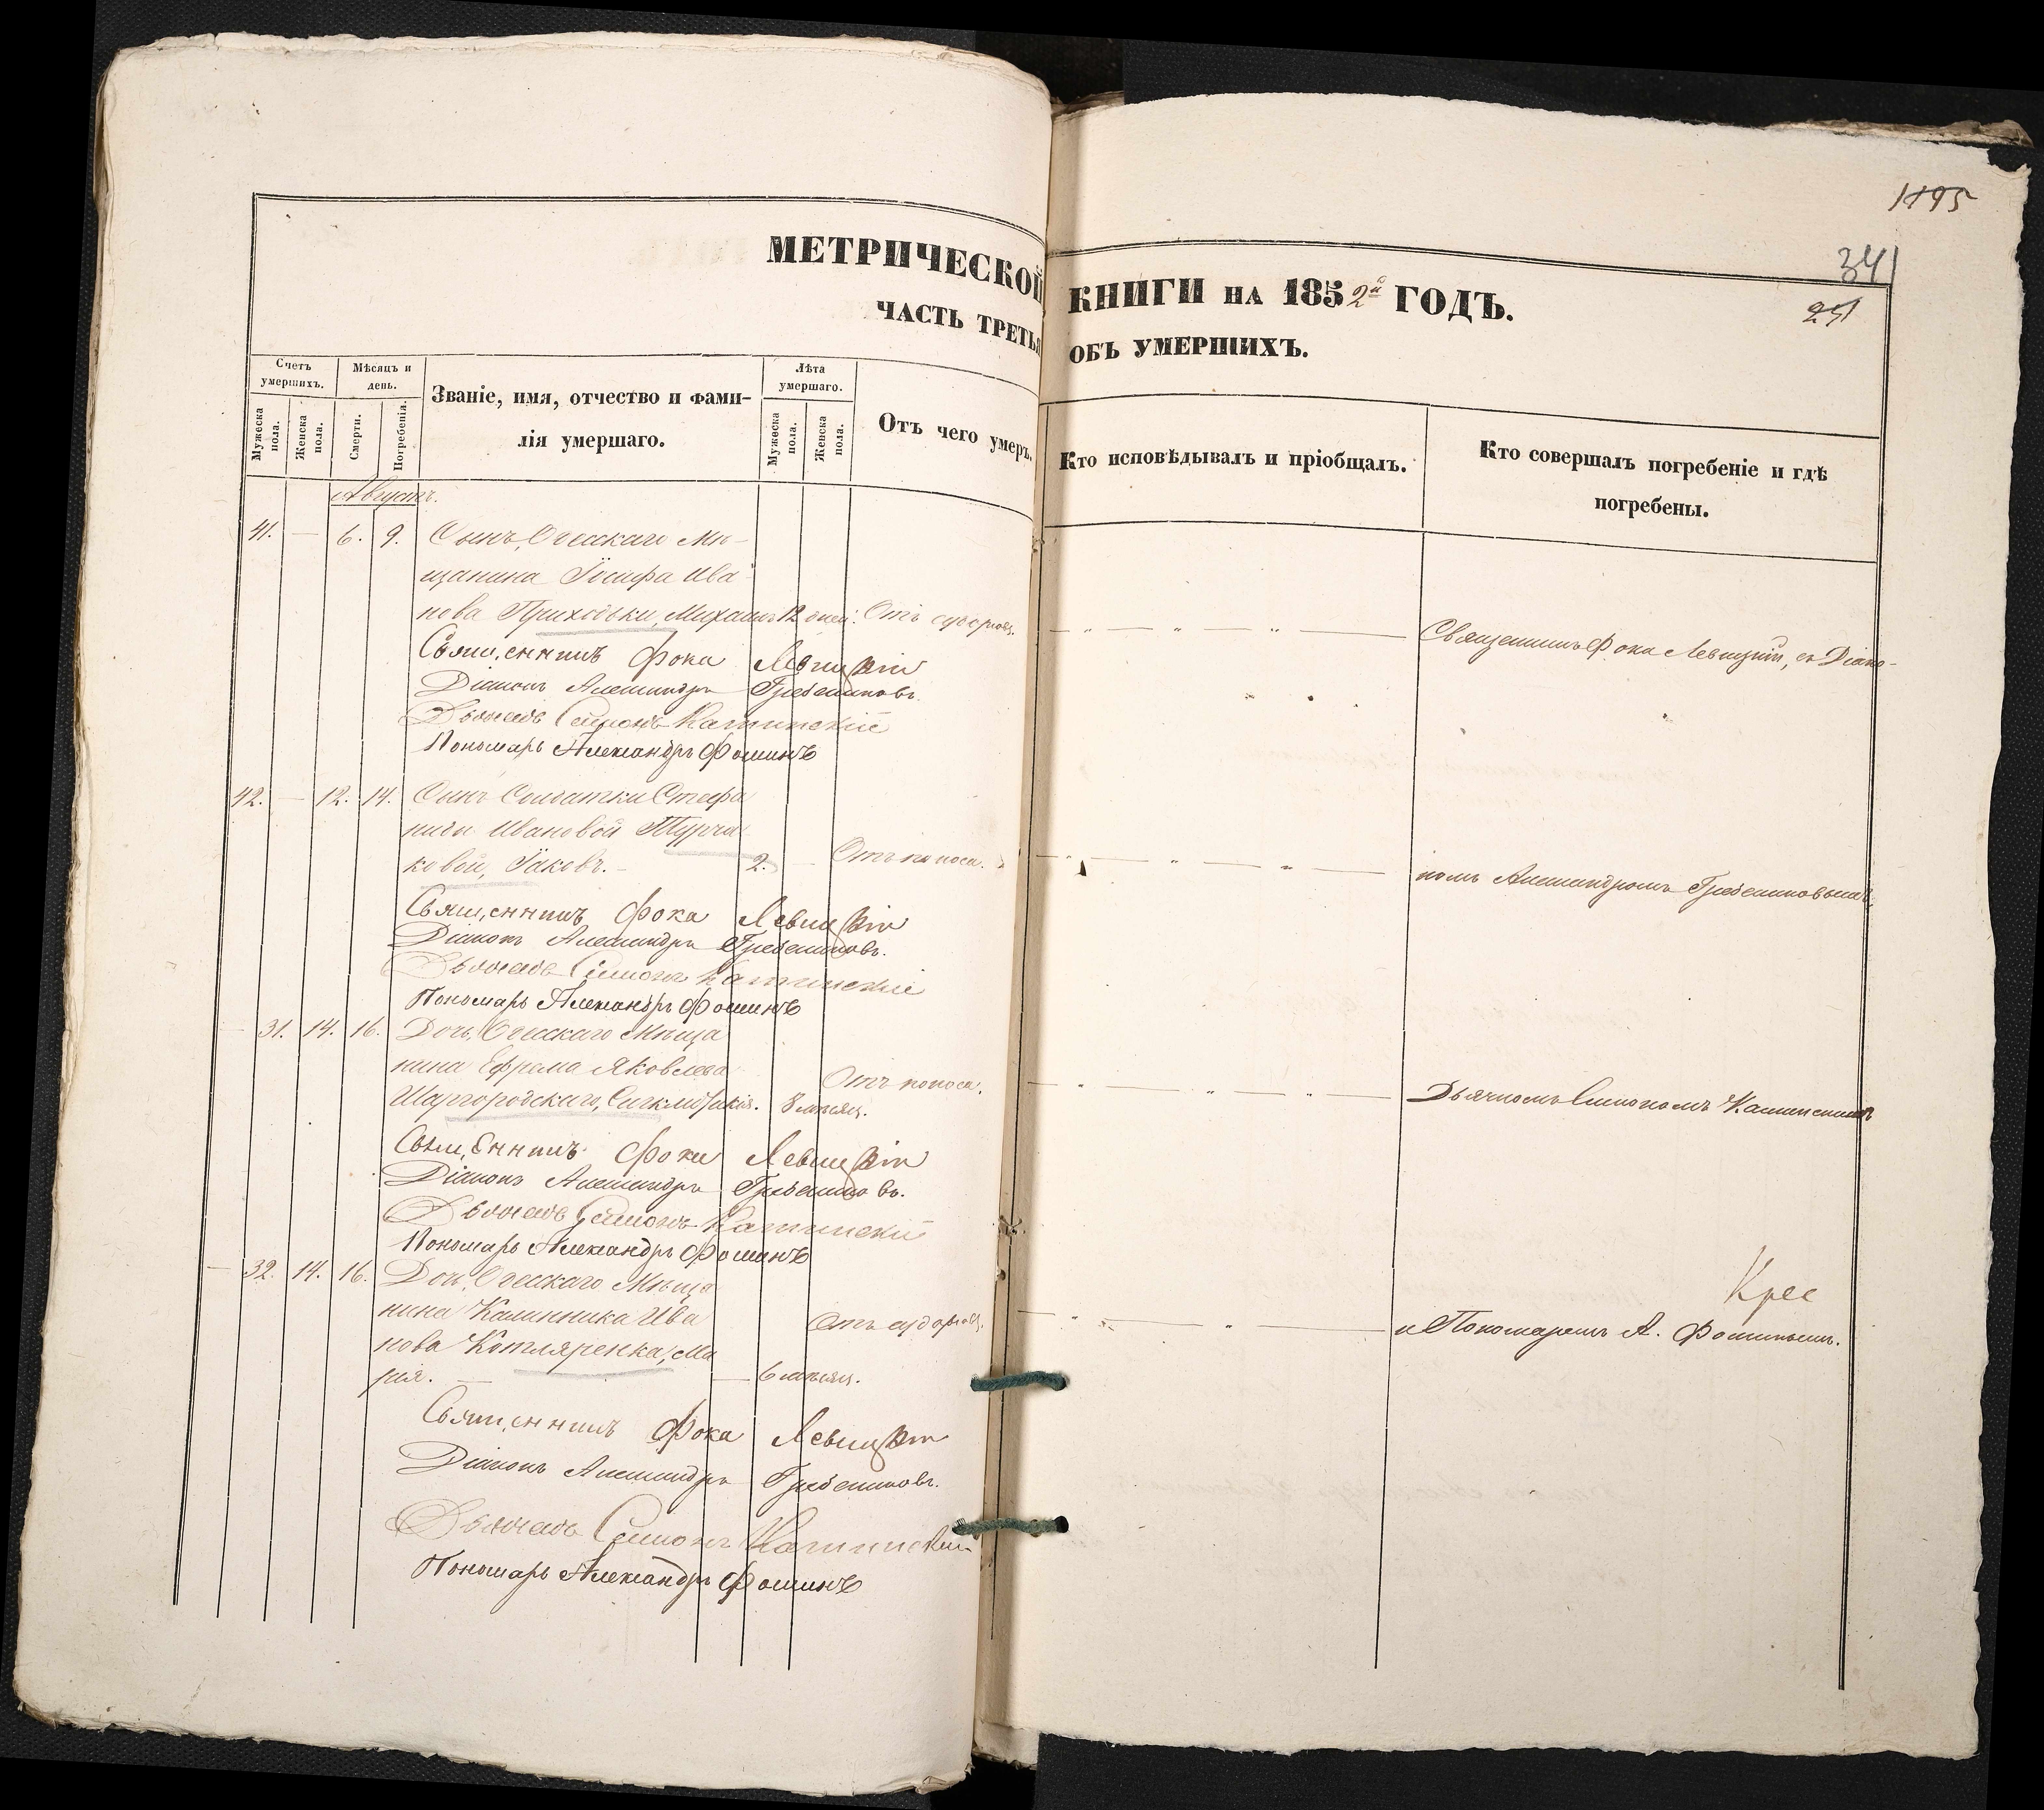 1195
МЕТРИЧЕСКОЙ КНИГИ НА 1852й ГОДЪ.
341
251
ЧАСТЬ ТРЕТЬЯ ОБЪ УМЕРШИХЪ.
Счетъ умершихъ.
Мужеска пола.
Женска пола.
Мѣсяцъ и день.
Смерти.
Погребенія.
Званіе, имя, отчество и фами-
лія умершаго.
Лѣта умершаго.
Мужеска пола.
Женска пола.
Отъ чего умеръ.
Кто исповѣдывалъ и пріобщалъ.
Кто совершалъ погребеніе и гдѣ
погребены.
Августъ.
41. — 6. 9. Сынъ, Одесскаго Мѣ-
щанина Іосифа Ива-
нова Приходьки, Михаилъ 12 дней. Отъ судорогъ.
Священникъ Фока Левицкій, съ Діако-
Священникъ Фока Левицкій
Діаконъ Александръ Гребенниковъ.
Дьячекъ Симонъ Каминскій
Пономарь Александръ Фоминъ
42. — 12. 14. Сынъ Солдатки Стефа
ниды Ивановой Турча
ковой, Іаковъ. — 2. — Отъ поноса.
номъ Александромъ Гребенниковымъ,
Священникъ Фока Левицкій
Діаконъ Александръ Гребенниковъ.
Дьячекъ Симонъ Каминскій
Пономарь Александръ Фоминъ
— 31. 14. 16. Дочь, Одесскаго Мѣща
нина Ефрема Яковлева
Шаргородскаго, Синклитикія. 8 мѣсяц. Отъ поноса.
Дьячкомъ Симономъ Каминскимъ
Священникъ Фока Левицкій
Діаконъ Александръ Гребенниковъ.
Дьячекъ Симонъ Каминскій
Пономарь Александръ Фоминъ
— 32. 14. 16. Дочь, Одесскаго Мѣща
нина Калинника Ива
нова Котляренка, Ма
рія. — — 6 мѣсяц. Отъ судорогъ.
Крес
и Пономаремъ А. Фоминымъ.
Священникъ Фока Левицкій
Діаконъ Александръ Гребенниковъ.
Дьячекъ Симонъ Каминскій
Пономарь Александръ Фоминъ